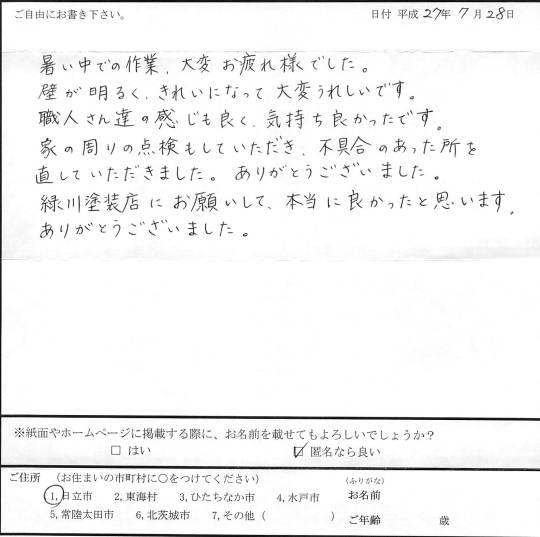 ご自由にお書き下さい。 日付 平成 27年 7月 28日
暑い中での作業、大変お疲れ様でした。
壁が明るく、きれいになって大変うれしいです。
職人さん達の感じも良く、気持ち良かったです。
家の周りの点検もしていただき、不具合のあった所を
直していただきました。ありがとうございました。
緑川塗装店にお願いして、本当に良かったと思います。
ありがとうございました。
※紙面やホームページに掲載する際に、お名前を載せてもよろしいでしょうか？
□ はい ☑ 匿名なら良い
ご住所 (お住まいの市町村に○をつけてください) (ふりがな)
1,日立市 2,東海村 3,ひたちなか市 4,水戸市 お名前
5,常陸太田市 6,北茨城市 7,その他 ( ) ご年齢 歳